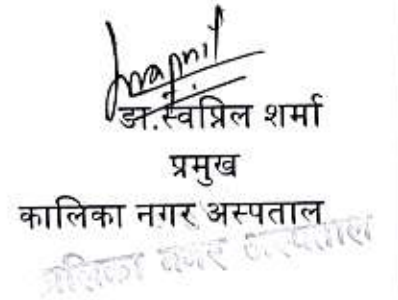 Swapnil
डा.स्वप्निल शर्मा
प्रमुख
कालिका नगर अस्पताल
कालिका नगर अस्पताल